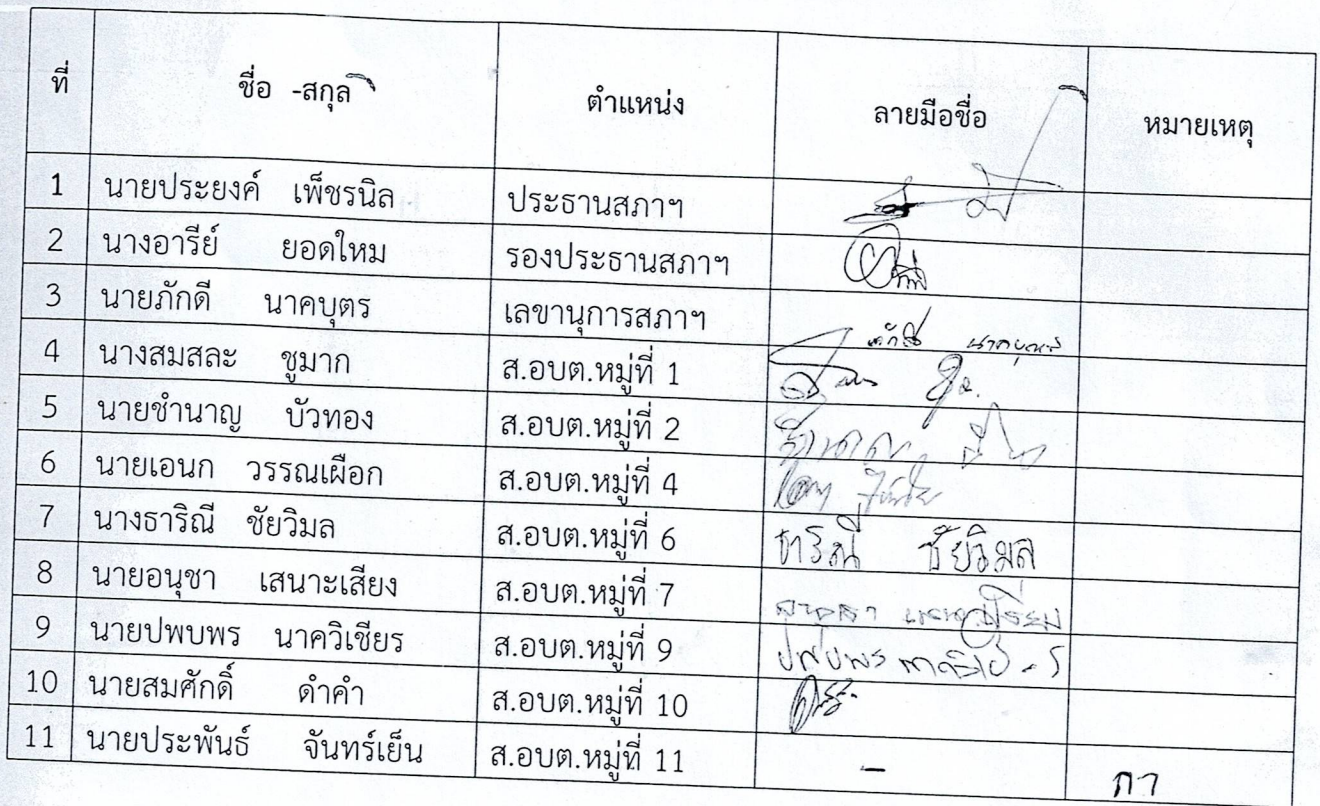 ที่ ชื่อ -สกุล ตำแหน่ง ลายมือชื่อ หมายเหตุ
1 นายประยงค์ เพ็ชรนิล ประธานสภาฯ
2 นางอารีย์ ยอดใหม รองประธานสภาฯ
3 นายภักดี นาคบุตร เลขานุการสภาฯ ภักดี นาคบุตร
4 นางสมสละ ชูมาก ส.อบต.หมู่ที่ 1
5 นายชำนาญ บัวทอง ส.อบต.หมู่ที่ 2
6 นายเอนก วรรณเผือก ส.อบต.หมู่ที่ 4
7 นางธาริณี ชัยวิมล ส.อบต.หมู่ที่ 6 ธาริณี ชัยวิมล
8 นายอนุชา เสนาะเสียง ส.อบต.หมู่ที่ 7
9 นายปพบพร นาควิเชียร ส.อบต.หมู่ที่ 9 ปพบพร
10 นายสมศักดิ์ ดำคำ ส.อบต.หมู่ที่ 10
11 นายประพันธ์ จันทร์เย็น ส.อบต.หมู่ที่ 11 -